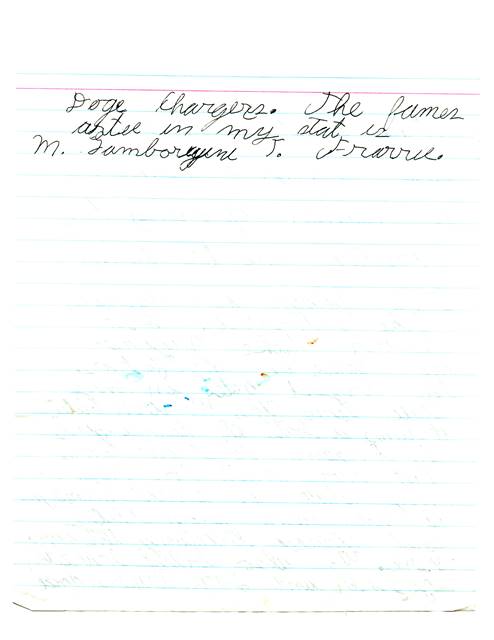 Doge Chargers. The fames
aztec in my stat is
M. Lamborgyuni T. Frarrie.